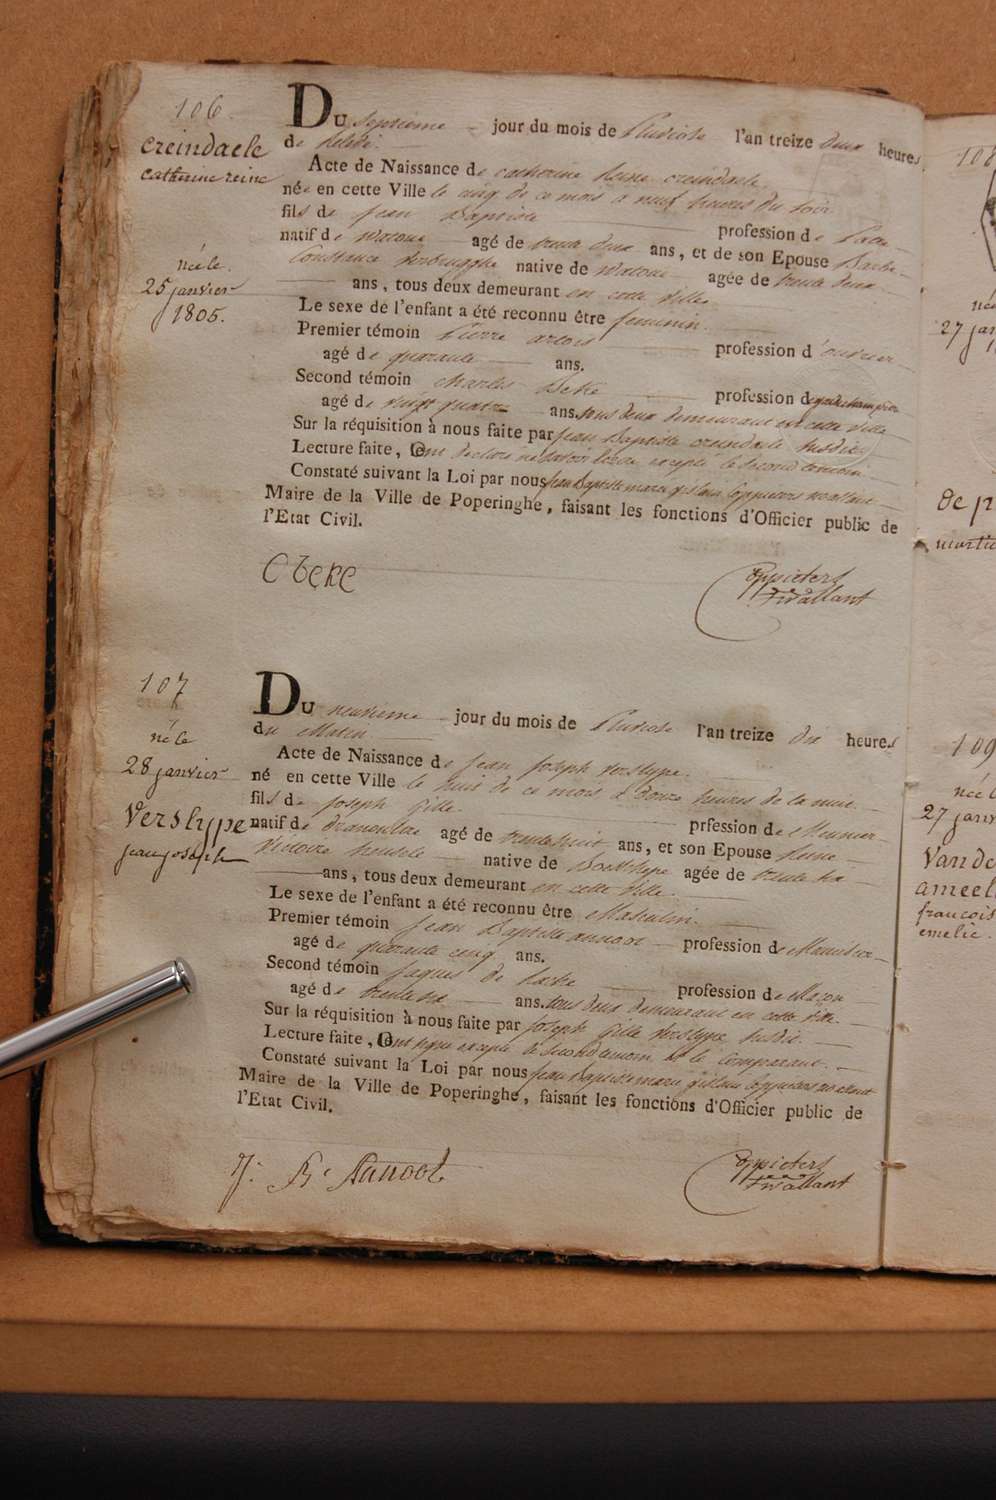 106
creindaele
catherine reine
née le
25 janvier
1805.
Du septieme jour du mois de Pluviose l'an treize deux heures
de relevée.
Acte de Naissance de catherine Reine creindaele
née en cette Ville le cinq de ce mois a neuf heures du soir
fils de jean Baptiste profession de
natif de watoue agé de trente deux ans, et de son Epouse Barbe
Constance verbrugghe native de watoue agée de trente deux
ans, tous deux demeurant en cette Ville
Le sexe de l'enfant a été reconnu être feminin.
Premier témoin Pierre artois profession d'ouvrier
agé de quarante ans.
Second témoin charles Beke profession de
agé de vingt quatre ans. tous deux demeurant en cette ville
Sur la réquisition à nous faite par jean Baptiste creindaele susdit
Lecture faite, Ont declaré ne savoir ecrire excepté le second temoin
Constaté suivant la Loi par nous jean Baptiste marie
Maire de la Ville de Poperinghe, faisant les fonctions d'Officier public de
l'Etat Civil.
C Beke
107
né le
28 janvier
Verslype
jean joseph
Du neuvieme jour du mois de Pluviose l'an treize dix heures
du Matin
Acte de Naissance de jean joseph verslype.
né en cette Ville le huit de ce mois à douze heures de la nuit
fils de joseph Gille prfession de Meunier
natif de Dranoutre agé de trente huit ans, et son Epouse Reine
Victoire native de agée de trente
ans, tous deux demeurant en cette Ville
Le sexe de l'enfant a été reconnu être Masculin.
Premier témoin jean Baptiste profession de Menuisier
agé de quarante cinq ans.
Second témoin jaques de profession de Maçon
agé de trente ans. tous deux demeurant en cette ville.
Sur la réquisition à nous faite par joseph Gille Verslype susdit.
Lecture faite, Ont signé excepté le second temoin et le comparant.
Constaté suivant la Loi par nous jean Baptiste marie
Maire de la Ville de Poperinghe, faisant les fonctions d'Officier public de
l'Etat Civil.
108
27 jan
de p
109
né le
27 janv
Vande
ameel
francois
emelie.